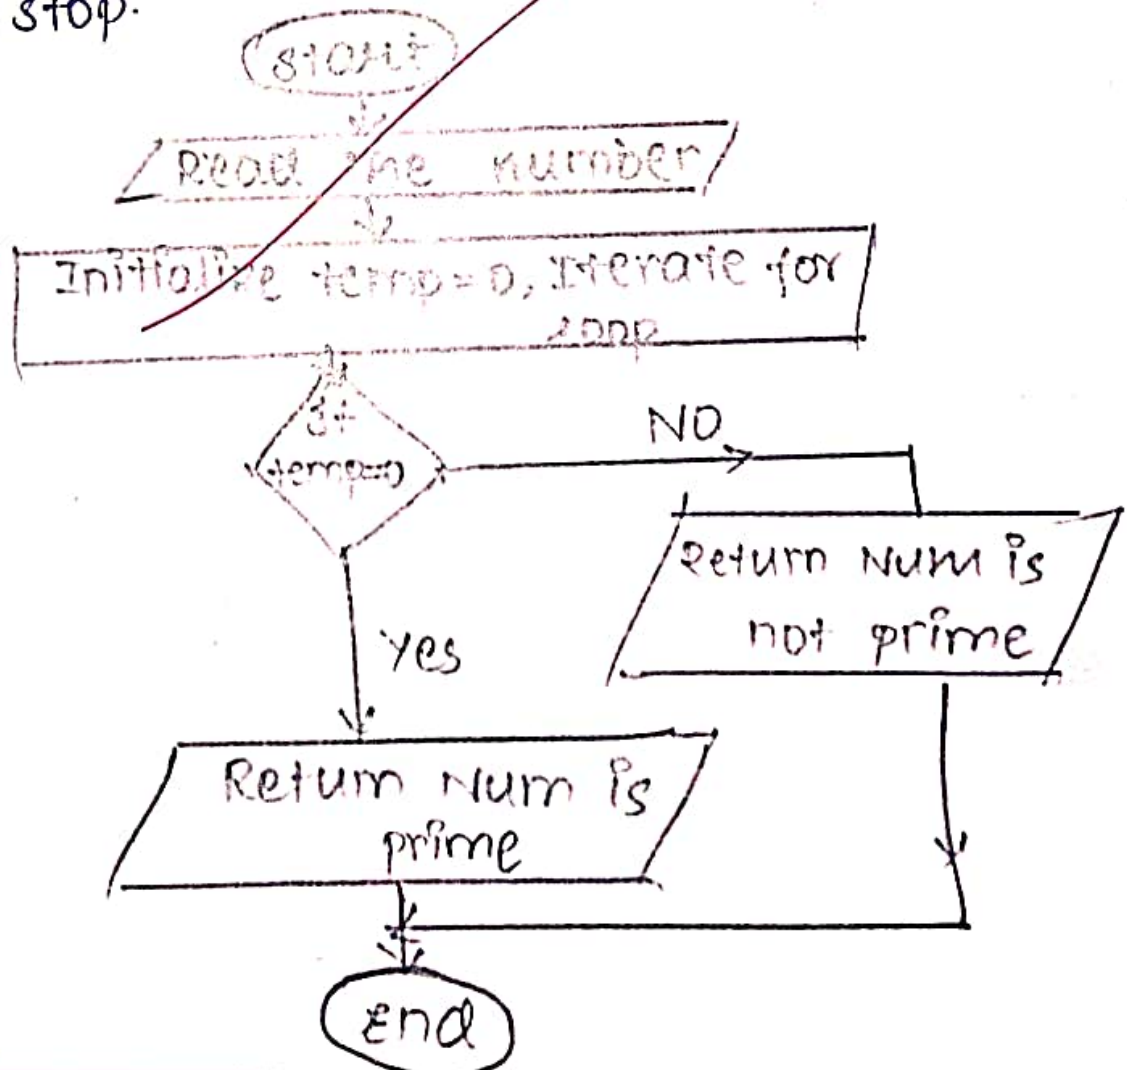 stop.
Start
Read the number
Initialize temp=0, Iterate for
loop
If
temp==0
NO
Return Num is
not prime
Yes
Return Num is
prime
End